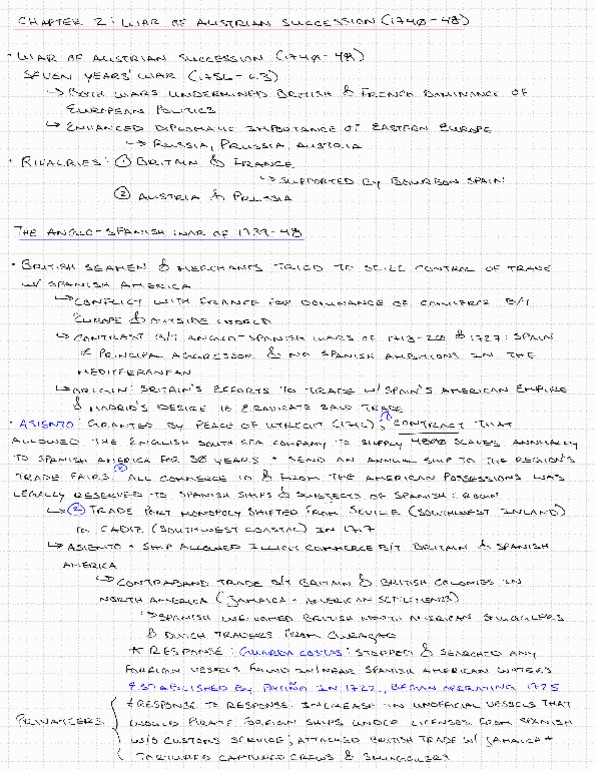 CHAPTER 2: WAR OF AUSTRIAN SUCCESSION (1740-48)
· WAR OF AUSTRIAN SUCCESSION (1740-48)
SEVEN YEARS' WAR (1756-63)
↳ BOTH WARS UNDERMINED BRITISH & FRENCH DOMINANCE OF
EUROPEAN POLITICS
↳ ENHANCED DIPLOMATIC IMPORTANCE OF EASTERN EUROPE
↳ RUSSIA, PRUSSIA, AUSTRIA
· RIVALRIES: ① BRITAIN & FRANCE
↳ SUPPORTED BY BOURBON SPAIN
② AUSTRIA & PRUSSIA
THE ANGLO-SPANISH WAR OF 1739-48
· BRITISH SEAMEN & MERCHANTS TRIED TO SEIZE CONTROL OF TRADE
W/ SPANISH AMERICA
↳ CONFLICT WITH FRANCE FOR DOMINANCE OF COMMERCE B/T
EUROPE & OUTSIDE WORLD
↳ CONTRAST B/T ANGLO-SPANISH WARS OF 1718-20 & 1727: SPAIN
≠ PRINCIPAL AGGRESSOR & NO SPANISH AMBITIONS IN THE
MEDITERRANEAN
↳ ORIGIN: BRITAIN'S EFFORTS TO TRADE W/ SPAIN'S AMERICAN EMPIRE
& MADRID'S DESIRE TO ERADICATE SAID TRADE
· ASIENTO: GRANTED BY PEACE OF UTRECHT : CONTRACT THAT
ALLOWED THE ENGLISH SOUTH SEA COMPANY TO SUPPLY 4800 SLAVES ANNUALLY
TO SPANISH AMERICA FOR 30 YEARS + SEND AN ANNUAL SHIP TO THE REGION'S
TRADE FAIRS. ALL COMMERCE IN & FROM THE AMERICAN POSSESSIONS WAS
LEGALLY RESERVED TO SPANISH SHIPS & SUBJECTS OF SPANISH CROWN
↳ ② TRADE PORT MONOPOLY SHIFTED FROM SEVILLE (SOUTHWEST INLAND)
TO CADIZ (SOUTHWEST COASTAL) IN 1717
↳ ASIENTO + SHIP ALLOWED ILLICIT COMMERCE B/T BRITAIN & SPANISH
AMERICA
↳ CONTRABAND TRADE B/T BRITAIN & BRITISH COLONIES IN
NORTH AMERICA (JAMAICA + AMERICAN SETTLEMENTS)
↳ SPANISH WELCOMED BRITISH NORTH AMERICAN SMUGGLERS
& DUTCH TRADERS FROM CURAÇAO
* RESPONSE: GUARDA COSTAS: STOPPED & SEARCHED ANY
FOREIGN VESSELS FOUND IN/NEAR SPANISH AMERICAN WATERS
ESTABLISHED BY PATIÑO IN 1722, BEGAN OPERATING 1725
RESPONSE TO RESPONSE: INCREASE IN UNOFFICIAL VESSELS THAT
PRIVATEERS WOULD PIRATE FOREIGN SHIPS UNDER LICENSES FROM SPANISH
W/O CUSTOMS SERVICE; ATTACKED BRITISH TRADE W/ JAMAICA +
TORTURED CAPTURED CREWS & SMUGGLERS